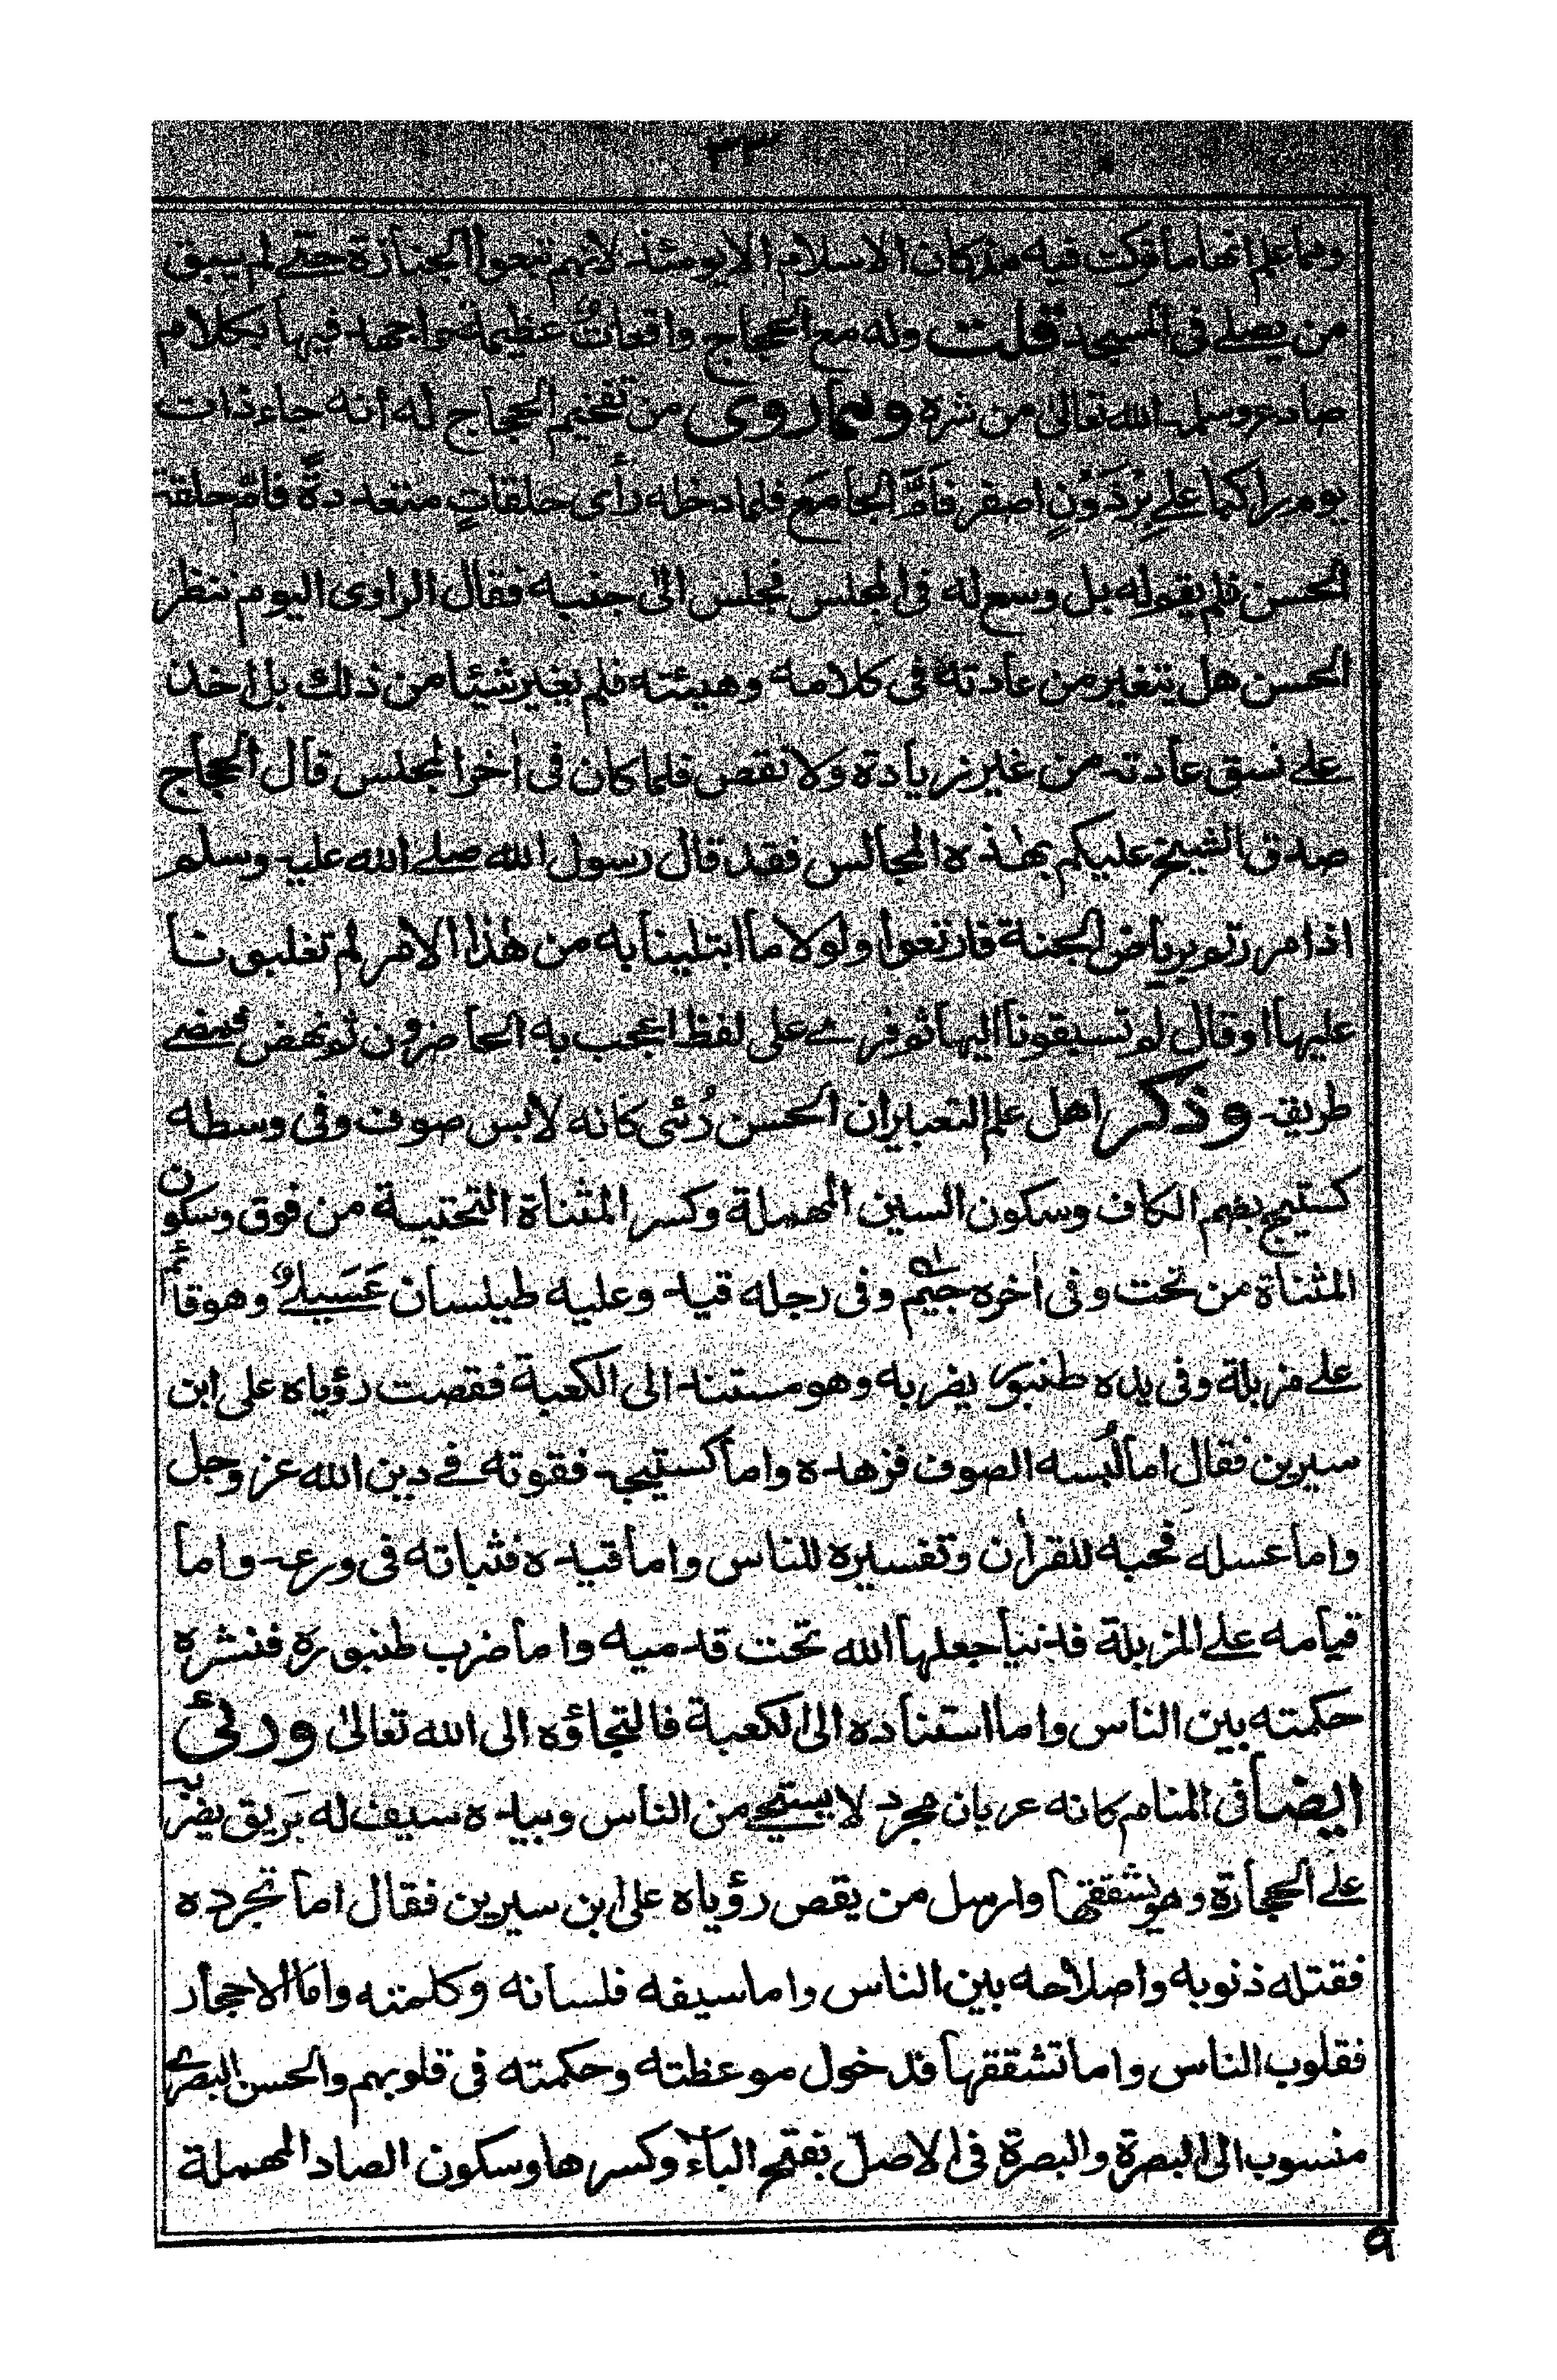 ٣٣
وما علم انها ما تركت فيه منذ كان الاسلام الا يومئذ لانهم تبعوا الجنازة حتى لم يبق
من يصلي في المسجد قلت وله مع الحجاج واقعات عظيمة واجهه فيها بكلام
صادع وسلمه الله تعالى من شره ومما روى من تفخيم الحجاج له أنه جاء ذات
يوم راكبا على برْذَوْنٍ اصفر فَأَمَّ الجامع فلما دخله رأى حلقاتٍ متعددةً فامّ حلقة
الحسن فلم يقم له بل وسع له في المجلس فجلس الى جنبه فقال الراوى اليوم ننظر
الحسن هل يتغير من عادته في كلامه وهيئته فلم يغير شيئا من ذلك بل اخذ
على نسق عادته من غير زيادة ولا نقص فلما كان في اٰخر المجلس قال الحجاج
صدق الشيخ عليكم بهذه المجالس فقد قال رسول الله صلے الله عليه وسلم
اذا مررتم برياض الجنة فارتعوا ولولا ما ابتلينا به من هٰذا الامر لم تغلبونا
عليها او قال لم تسبقونا اليها ثم فرے على لفظ اعجب به الحاضرون ثم نهض فمضے
طريقه وذكر اهل علم التعبير ان الحسن رُئى كانه لابس صوف وفى وسطه
كستيج بضم الكاف وسكون السين المهملة وكسر المثناة التحتية من فوق وسكون
المثناة من تحت وفى اٰخره جيم وفى رجله قيد وعليه طيلسان عَسَلِيٌ وهو قائم
علے مزبلة وفى يده طنبور يضرب به وهو مستند الى الكعبة فقصت رؤياه على ابن
سيرين فقال اما لُبسه الصوف فزهده واما كستيجه فقوته فے دين الله عز وجل
واما عسله فحبه للقراٰن وتفسيره للناس واما قيده فثباته فى ورعه واما
قيامه علے المزبلة فدنيا جعلها الله تحت قدميه واما ضرب طنبوره فنشره
حكمته بين الناس واما استناده الى الكعبة فالتجاؤه الى الله تعالىٰ ورئى
ايضا فى المنام كانه عريان مجرد لا يستحيے من الناس وبيده سيف له بَريق يضرب به
علے الحجارة وهو يشققها وارسل من يقص رؤياه على ابن سيرين فقال اما تجرده
فقتله ذنوبه واصلاحه بين الناس واما سيفه فلسانه وكلمته واما الاحجار
فقلوب الناس واما تشققها فدخول موعظته وحكمته فى قلوبهم والحسن البصرے
منسوب الى البصرة والبصرة فى الاصل بفتح البآء وكسرها وسكون الصاد المهملة
٩